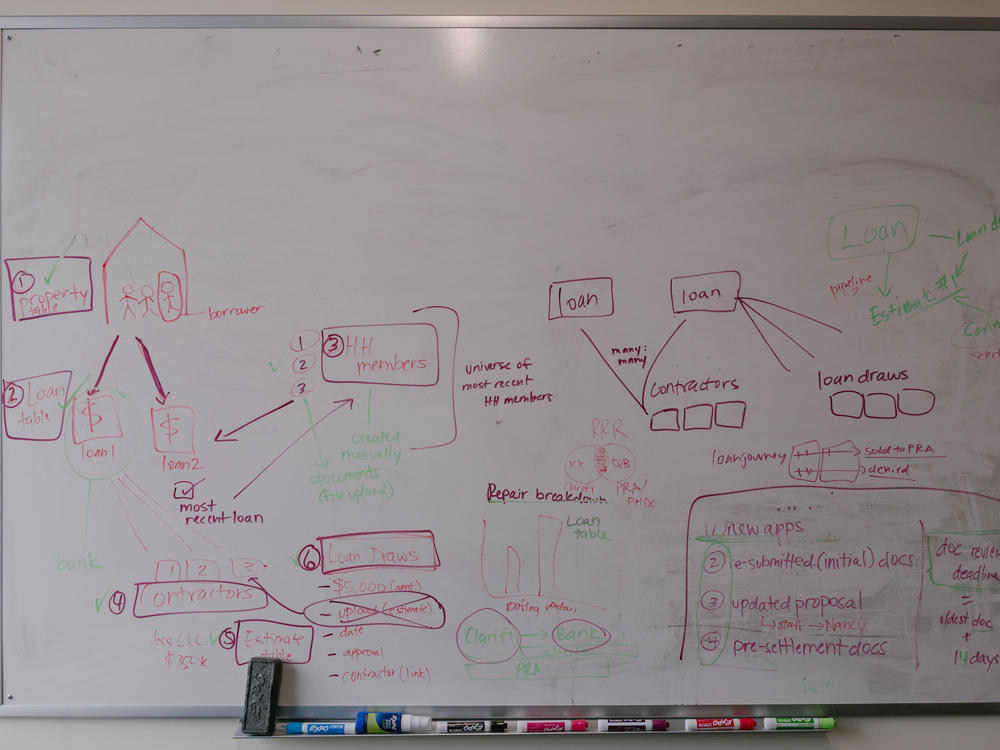 1
property
table
borrower
2 Loan
table
$
loan1
$
loan2
most
recent loan
bank
1
2
3
3 HH
members
universe of
most recent
HH members
created
manually
documents
(file upload)
1 2 3
4 Contractors
$350K
5 Estimate
table
6 Loan Draws
- $5,000 (amt)
- upload (estimate)
- date
- approval
- contractor (link)
loan
loan
many:
many
contractors
loan draws
Loan
pipeline
?
Estimate #1
RRR
PRA/
Repair breakdown
Loan
table
Clarifi
Bank
PRA
loan journey
sold to PRA
denied
...
new apps
2 re-submitted (initial) docs
3 updated proposal
staff → Nancy
4 pre-settlement docs
doc review
deadline
=
oldest doc
+
14 days
EXPO
EXPO
EXPO
EXPO
EXPO
EXPO